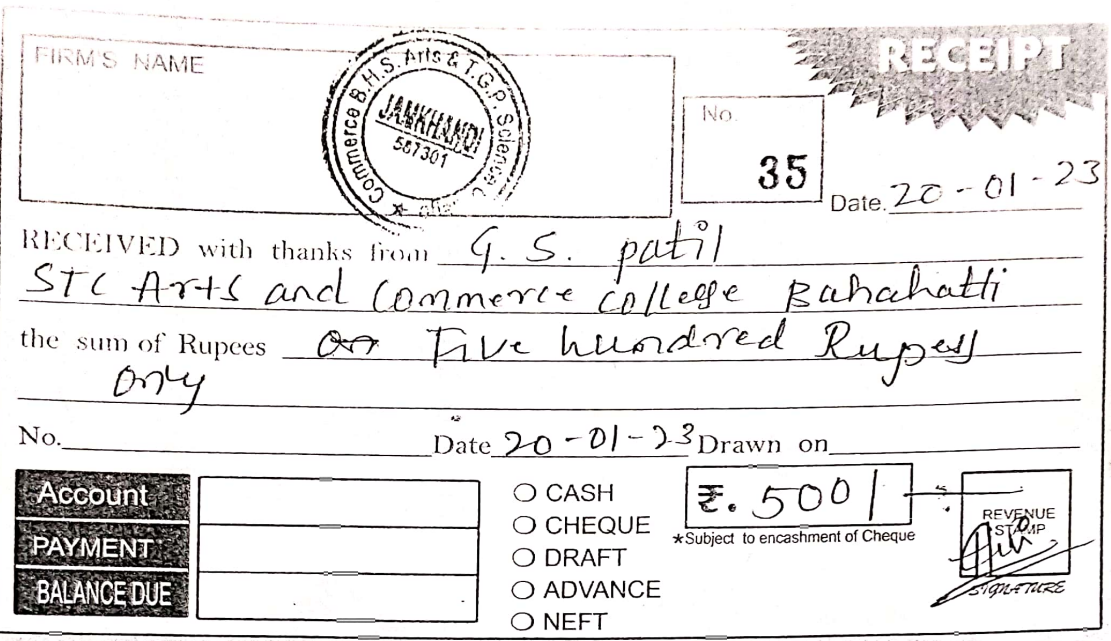 RECEIPT
FIRM'S NAME
Commerce B.H.S. Arts & T.G.P. Science
JAMKHANDI
587301
No.
35
Date. 20-01-23
RECEIVED with thanks from G. S. patil
STC Arts and Commerce college Bahahatti
the sum of Rupees Five hundred Rupess
only
No. Date 20-01-23 Drawn on
Account
PAYMENT
BALANCE DUE
CASH
CHEQUE
DRAFT
ADVANCE
NEFT
₹. 500/-
*Subject to encashment of Cheque
REVENUE
STAMP
SIGNATURE